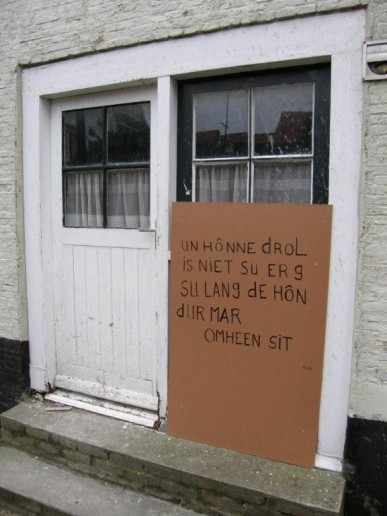 UN HÔNNE dROL
IS NIET SU ERG
SU LANG dE HÔN
dUR MAR
OMHEEN SIT